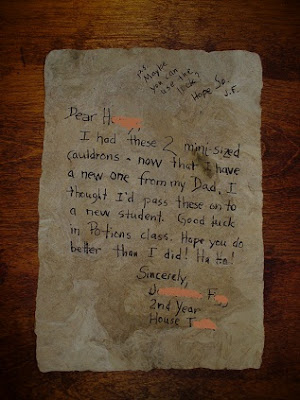 p.s.
Maybe
you can
use the
luck.
Hope So.
J.F.
Dear H
I had these 2 mini-sized
cauldrons - now that I have
a new one from my Dad, I
thought I'd pass these on to
a new student. Good luck
in Potions class. Hope you do
better than I did! Ha ha!
Sincerely,
J F
2nd Year
House T